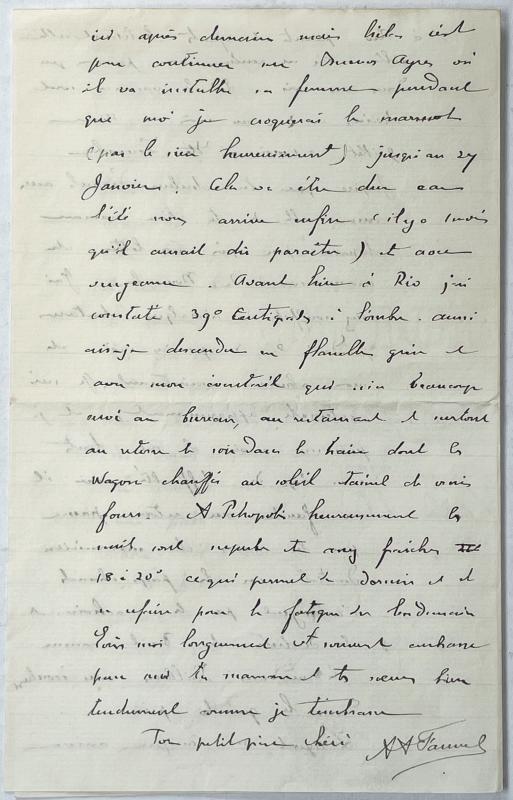 ici après demain mais hélas c'est
pour continuer sur Buenos Ayres où
il va installer sa femme pendant
que moi je croquerai le marmot
(pas le sien heureusement) jusqu'au 27
Janvier. Cela va être dur car
l'été nous arrive enfin (il y a 1 mois
qu'il aurait dû paraître) et avec
vengeance. Avant hier à Rio j'ai
constaté 39° Centigrades à l'ombre. aussi
ai-je descendu en flanelle grise et
avec mon éventail qui beaucoup
moi au bureau, au restaurant et surtout
au retour le soir dans le train dont les
wagons chauffés au soleil étaient de vrais
fours. A Pétropolis heureusement les
nuits sont superbes et assez fraîches
18 à 20° ce qui permet de dormir et
se refaire pour la fatigue du lendemain
Ecris moi longuement et souvent embrasse
pour moi ta maman et tes soeurs bien
tendrement comme je t'embrasse
Ton petit père chéri